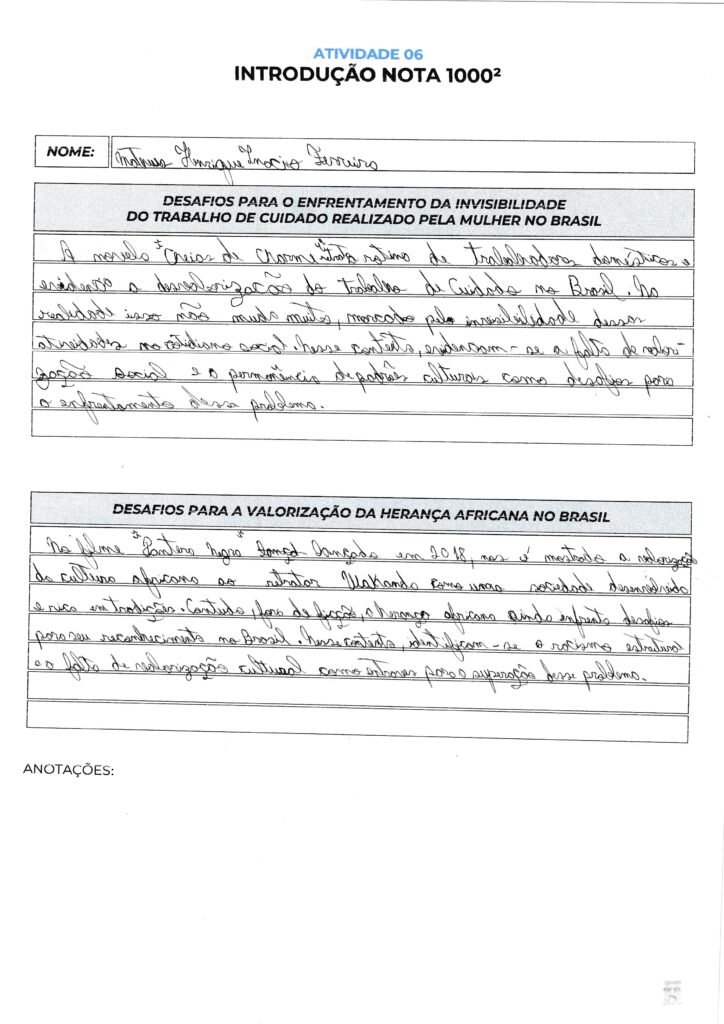 ATIVIDADE 06
INTRODUÇÃO NOTA 1000²
NOME: Matheus Henrique Inacio Ferreira
DESAFIOS PARA O ENFRENTAMENTO DA INVISIBILIDADE
DO TRABALHO DE CUIDADO REALIZADO PELA MULHER NO BRASIL
A novela "Cheias de Charme" trata rotina de trabalhadoras domésticas e
evidencia a desvalorização do trabalho de Cuidado no Brasil. Na
realidade isso não muda muito, marcado pela invisibilidade dessas
atividades no cotidiano social. Nesse contexto, evidenciam-se a falta de valori-
zação social e a permanência de padrões culturais como desafios para
o enfrentamento desse problema.
DESAFIOS PARA A VALORIZAÇÃO DA HERANÇA AFRICANA NO BRASIL
No filme "Pantera Negra" lançado em 2018, nos é mostrado a valorização
da cultura africana ao retratar Wakanda como uma sociedade desenvolvida
e rica em tradições. Contudo, fora da ficção, a herança africana ainda enfrenta desafios
para seu reconhecimento no Brasil. Nesse contexto, identificam-se o racismo estrutural
e a falta de valorização cultural como entraves para a superação desse problema.
ANOTAÇÕES: